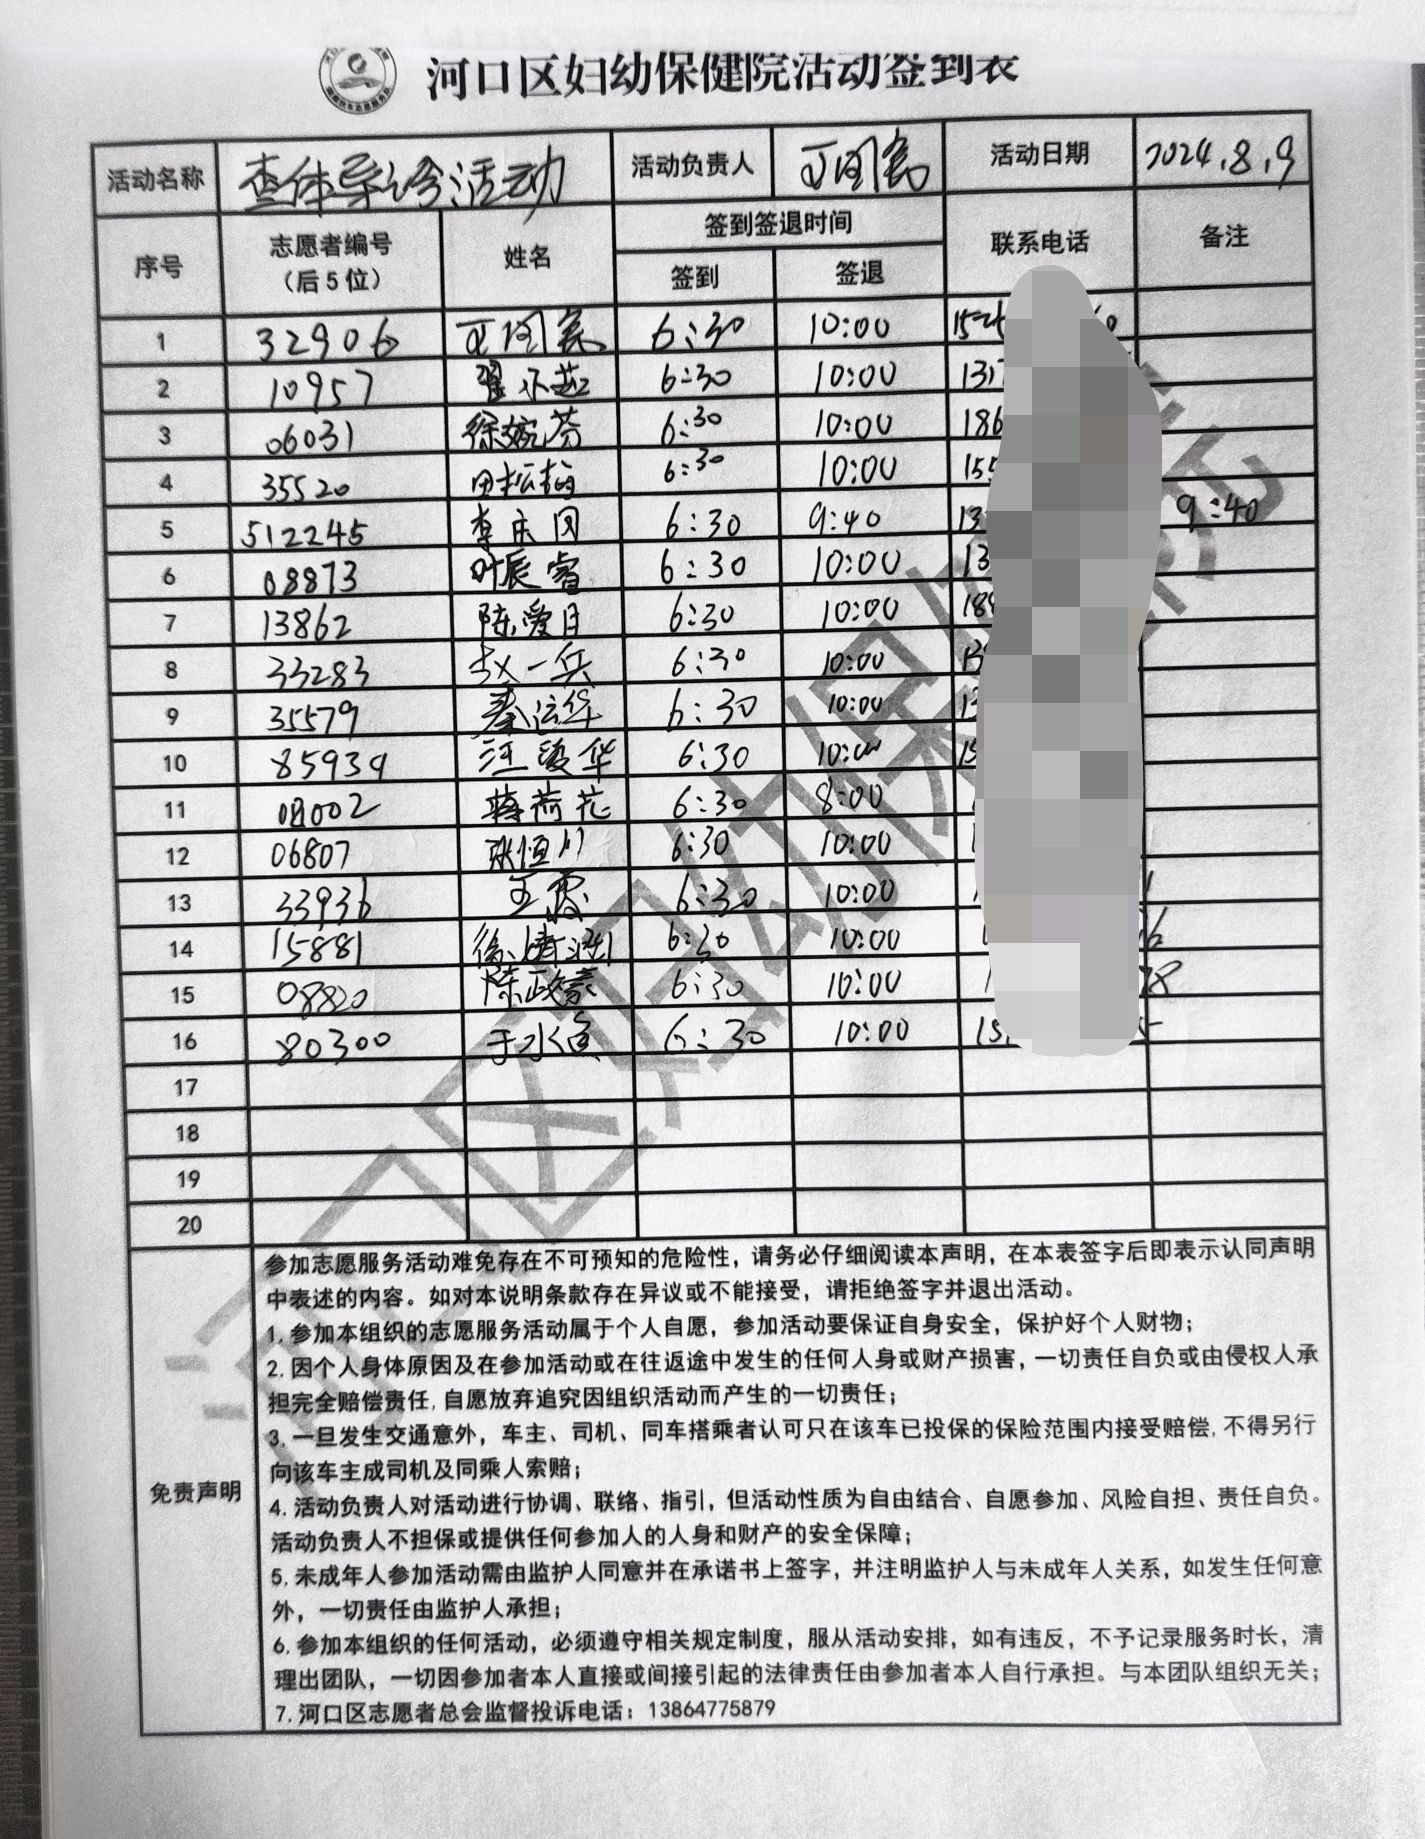 河口区妇幼保健院活动签到表
活动名称 查体导诊活动 活动负责人 活动日期 2024.8.9
序号 志愿者编号（后5位） 姓名 签到签退时间 联系电话 备注
签到 签退
1 32906 6:30 10:00
2 10957 6:30 10:00
3 06031 徐婉芬 6:30 10:00 186
4 35520 6:30 10:00 155
5 512245 李庆国 6:30 9:40 9:40
6 08873 叶辰睿 6:30 10:00
7 13862 陈爱月 6:30 10:00
8 33283 赵一兵 6:30 10:00
9 35579 秦运华 6:30 10:00
10 85939 汪俊华 6:30 10:00
11 蒋荷花 6:30 8:00
12 06807 张恒川 6:30 10:00
13 33936 王霞 6:30 10:00
14 15881 6:30 10:00
15 08820 陈政豪 6:30 10:00
16 80300 于水鱼 6:30 10:00
17
18
19
20
免责声明
参加志愿服务活动难免存在不可预知的危险性，请务必仔细阅读本声明，在本表签字后即表示认同声明
中表述的内容。如对本说明条款存在异议或不能接受，请拒绝签字并退出活动。
1.参加本组织的志愿服务活动属于个人自愿，参加活动要保证自身安全，保护好个人财物；
2.因个人身体原因及在参加活动或在往返途中发生的任何人身或财产损害，一切责任自负或由侵权人承
担完全赔偿责任,自愿放弃追究因组织活动而产生的一切责任；
3.一旦发生交通意外，车主、司机、同车搭乘者认可只在该车已投保的保险范围内接受赔偿,不得另行
向该车主成司机及同乘人索赔；
4.活动负责人对活动进行协调、联络、指引，但活动性质为自由结合、自愿参加、风险自担、责任自负。
活动负责人不担保或提供任何参加人的人身和财产的安全保障；
5.未成年人参加活动需由监护人同意并在承诺书上签字，并注明监护人与未成年人关系，如发生任何意
外，一切责任由监护人承担；
6.参加本组织的任何活动，必须遵守相关规定制度，服从活动安排，如有违反，不予记录服务时长，清
理出团队，一切因参加者本人直接或间接引起的法律责任由参加者本人自行承担。与本团队组织无关；
7.河口区志愿者总会监督投诉电话：13864775879
河口区妇幼保健院